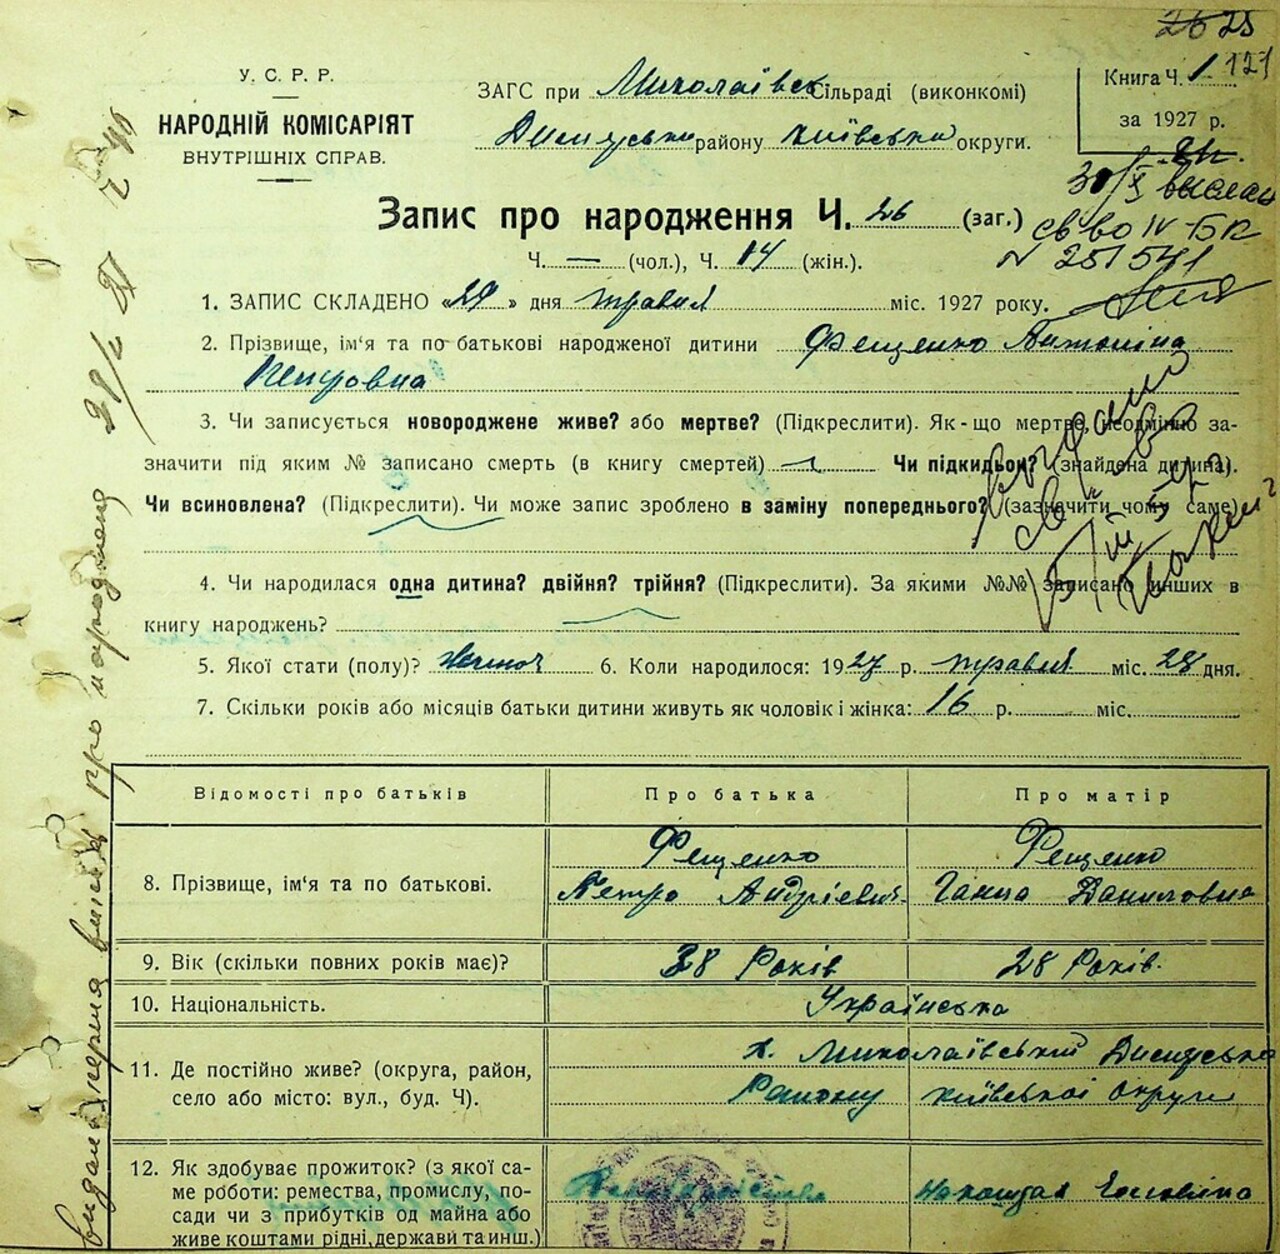 25
У. С. Р. Р.
НАРОДНІЙ КОМІСАРІЯТ
ВНУТРІШНІХ СПРАВ.
ЗАГС при Миколаївск Сільраді (виконкомі)
району Київська округи.
Книга Ч. 1 121
за 1927 р.
30/X выслан
св во IV-БК
N 251541
Запис про народження Ч. 26 (заг.)
Ч. — (чол.), Ч. 14 (жін.).
1. ЗАПИС СКЛАДЕНО «29» дня травня міс. 1927 року.
2. Прізвище, ім'я та по батькові народженої дитини Фещенко Антоніна
Петровна
3. Чи записується новороджене живе? або мертве? (Підкреслити). Як-що мертве, неодмінно за-
значити під яким № записано смерть (в книгу смертей) Чи підкидьок? (знайдена дитина).
Чи всиновлена? (Підкреслити). Чи може запис зроблено в заміну попереднього? (зазначити чому саме)
4. Чи народилася одна дитина? двійня? трійня? (Підкреслити). За якими №№ записано инших в
книгу народжень?
5. Якої стати (полу)? жіночої 6. Коли народилося: 1927 р. травня міс. 28 дня.
7. Скільки років або місяців батьки дитини живуть як чоловік і жінка: 16 р. міс.
Відомості про батьків Про батька Про матір
8. Прізвище, ім'я та по батькові.
Фещенко Фещенко
Петро Андрієвич Ганна Даниловна
9. Вік (скільки повних років має)? 38 Років 28 Років.
10. Національність. Українська
11. Де постійно живе? (округа, район,
село або місто: вул., буд. Ч).
х. Миколаївський
Району Київської округи
12. Як здобуває прожиток? (з якої са-
ме роботи: ремества, промислу, по-
сади чи з прибутків од майна або
живе коштами рідні, держави та инш.)
про народження